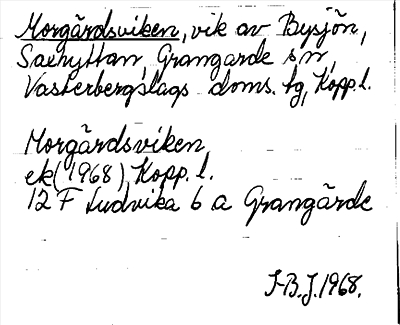 Morgårdsviken, vik av Bysjön,
Saxhyttan, Grangärde sn,
Västerbergslags doms. tg, Kopp. l.
Morgårdsviken,
ek (1968), Kopp. l.
12 F Ludvika 6 a Grangärde
I-B.J. 1968.